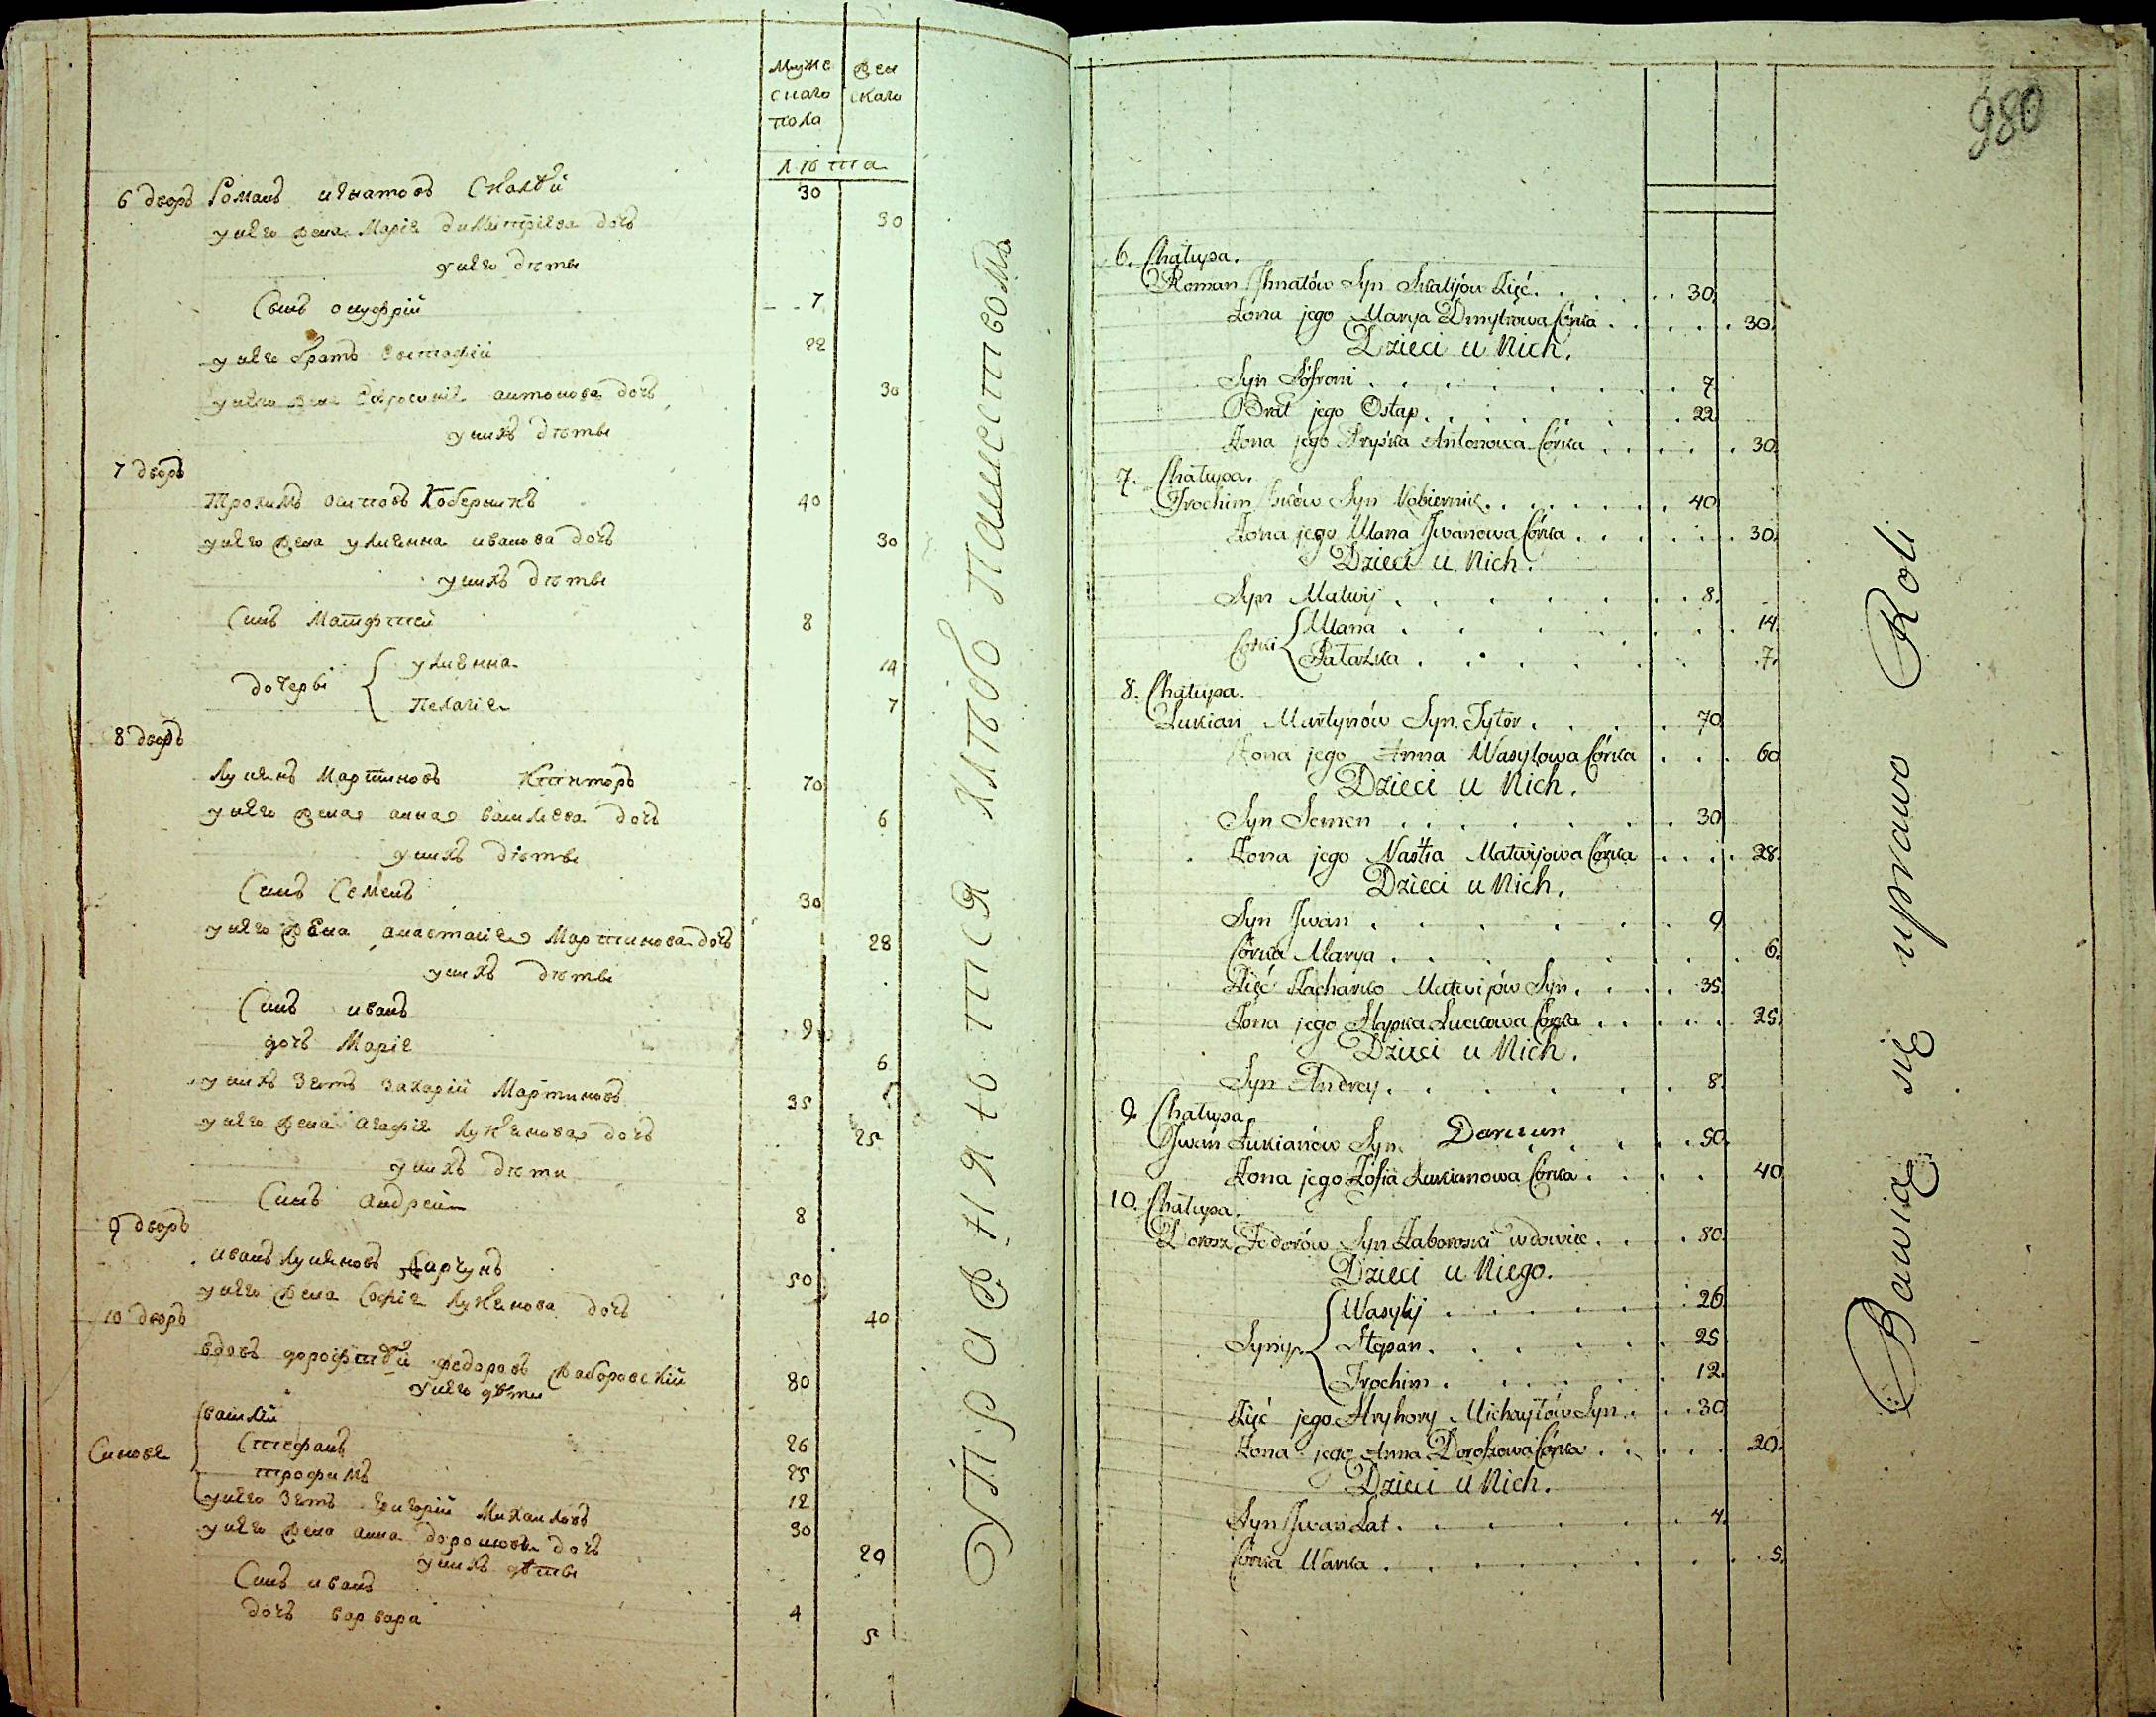 Муже
скаго
пола
Жен
скаго
лѣта
6 дворъ Романъ игнатовъ Скалѣй 30
у него жена Марiя димитрiева дочь 30
у него дѣти
Сынъ онуфрiй 7
у него братъ Евстафiй 22
у него жена Ефросинiя антонова дочь 30
у нихъ дѣти
7 дворъ
трохимъ осиповъ Коберникъ 40
у него жена улиянна иванова дочь 30
у нихъ дѣти
Синъ Матфтей 8
дочери { улиянна 14
пелагiя 7
8 дворъ
Лукянъ Мартиновъ Ктиторъ 70
у него жена анна василева дочь 6
у нихъ дѣти
Синъ Семенъ 30
у него жена анастасия Мартинова дочь 28
у нихъ дѣти
Синъ иванъ 9
дочь Марiя 6
у нихъ зять захарiй Мартиновъ 35
у него жена агафiя Лукянова дочь 25
у нихъ дѣти
Синъ андрей 8
9 дворъ
иванъ лукяновъ Дарчунъ 50
у него жена Софiя Лукянова дочь 40
10 дворъ
вдовъ дорофтѣй федоровъ Жаборовскiй 80
у него дѣти
Синове { василiй 26
Стефанъ 25
трофимъ 12
у него зять григорiй Михаиловъ 30
у него жена анна дорошова дочь 20
у нихъ дѣти
Синъ иванъ 4
дочь варвара 5
УПРАЖНЯЮТСЯ ХЛѢБОПАШЕСТВОМЪ
980
6. Chałupa.
Roman Ihnatów Syn Skalijów Zięć 30
Żona jego Marya Dmytrowa Córka 30
Dzieci u Nich.
Syn Sofroni 7
Brat jego Ostap 22
Żona jego Pryśka Antonowa Córka 30
7. Chałupa.
Trochim Jsków Syn Kobiernik 40
Żona jego Ulana Jwanowa Córka 30
Dzieci u Nich.
Syn Matwij 8.
Córki { Ulana 14
Pałażka 7.
8. Chałupa.
Łukian Martynów Syn Tytor 70
Żona jego Anna Wasylowa Córka 60
Dzieci u Nich.
Syn Semen 30
Żona jego Nastia Matwijowa Córka 28.
Dzieci u Nich.
Syn Jwan 9
Córka Marya 6.
Zięć Zacharko Matwijów Syn 35.
Żona jego Hapka Łucikowa Córka 25.
Dzieci u Nich.
Syn Andrey 8.
9. Chałupa.
Jwan Łukianów Syn Darczun 50.
Żona jego Zofia Łukianowa Córka 40
10. Chałupa.
Dorosz Fedorów Syn Zaborowski wdowiec 80.
Dzieci u Niego.
Syny { Wasylij 26
Stepan 25
Trochim 12.
Zięć jego Hryhory Michayłów Syn 30
Żona jego Anna Doroszowa Córka 20.
Dzieci u Nich.
Syn Jwan Lat 4.
Córka Warka 5.
Bawią się uprawo Roli